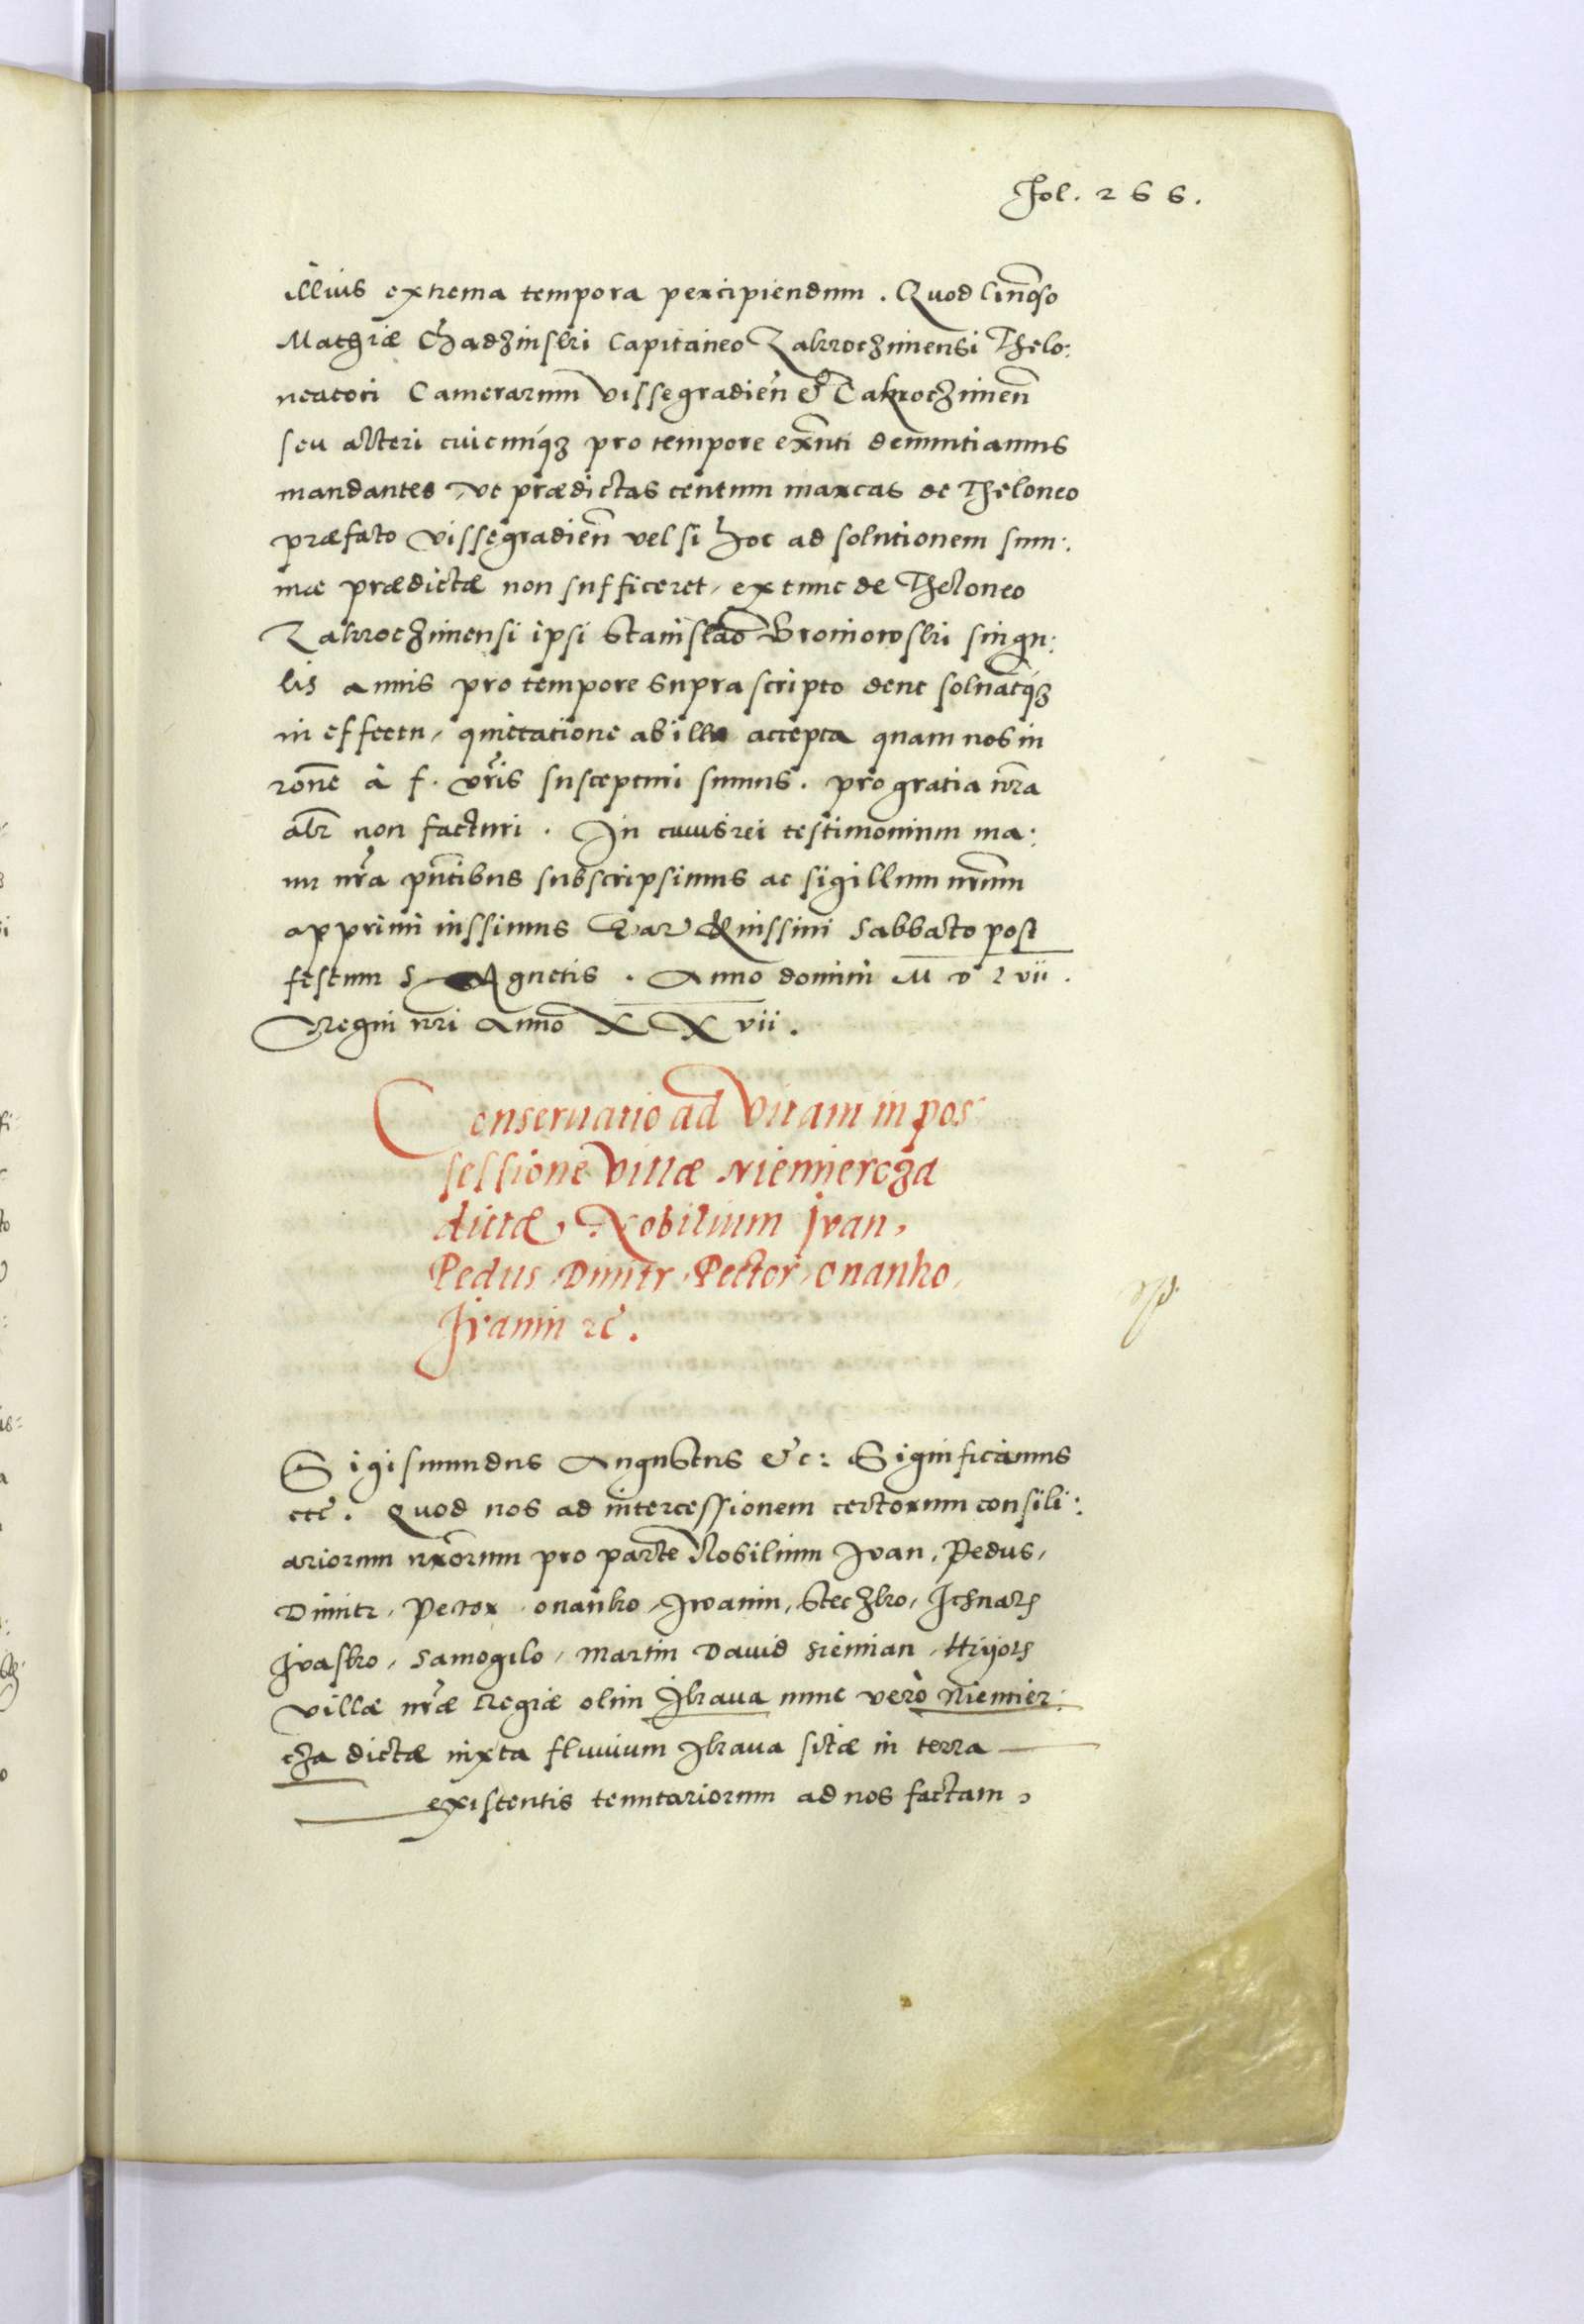 Fol. 266.
illius extrema tempora percipiendum. Quod Gnoso
Mathiæ Chadzinski Capitaneo Zakroczimensi Thelo:
neatori Camerarum Vissegradien̄ & Zakroczimen̄
seu alteri cuicunq́ꝫ pro tempore exn̄ti denuntiamus
mandantes, ut prædictas centum marcas de Theloneo
præfato Vissegradien̄ vel si hoc ad solutionem sum:
mæ prædictæ non sufficeret, ex tunc de Theloneo
Zakroczimensi ipsi Stanislao Broniowski singu:
lis annis pro tempore supra scripto det soluatq́ꝫ
in effectu, quietatione ab illo accepta quam nos in
rōne à f. vr̄is suscepturi sumus. pro gratia nr̄a
alr̄ non facturi. In cuius rei testimonium ma:
nu nr̄a pn̄tibus subscripsimus ac sigillum nr̄um
apprimi iussimus Dat Vilnæ Sabbato post
festum S. Agnetis. Anno domini M D Lvii.
Regni nr̄i Anno XXvii.
Conseruatio ad Vitam in pos
sessione Villæ Niemiercza
dictæ, Nobilium Jvan,
Pedus, Dimitr, Pector, Onanko,
Jvanin ꝛc̄.
Sigismundus Augustus &c: Significamus
etc̄. Quod nos ad intercessionem certorum consili:
ariorum nr̄orum pro parte Nobilium Jvan, Pedus,
Dimitr, Pector, Onanko, Jwanin, Steczko, Ichnath
Jvasko, Samogilo, Martin David Siemian, Hrihorÿ
villæ nr̄æ Regiæ olim Jkraua nunc verò Niemier:
cza dictæ iuxta fluuium Jkraua sitæ in terra
existentis tenutariorum ad nos factam,